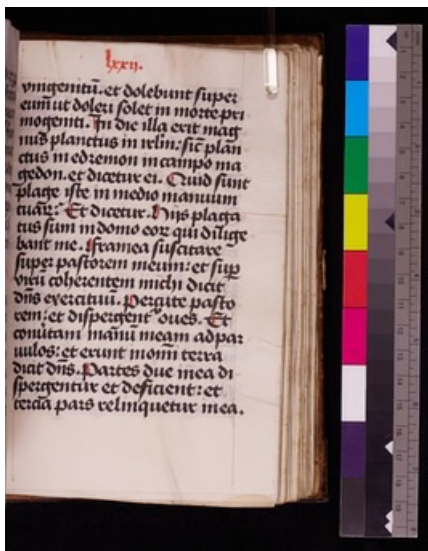 lxxii.
vnigenitū. et dolebunt super
eum ut doleri solet in morte pri
mogeniti. In die illa erit mag
nus planctus in irlm̄: sic̄ plan
ctus in edremon in campo ma
gedon. et dicetur ei. Quid sunt
plage iste in medio manuum
tuaꝝ: Et dicetur. Hijs plaga
tus sum in domo eoꝝ qui dilige
bant me. Framea suscitare
super pastorem meum: et suꝑ
virū coherentem michi dicit
dn̄s exercituū. Percute pasto
rem: et dispergent̄ oues. Et
conūtam manū meam ad par
uulos: et erunt in om̄i terra
dicit dn̄s. Partes due in ea di
spergentur et deficient: et
tercia pars relinquetur in ea.